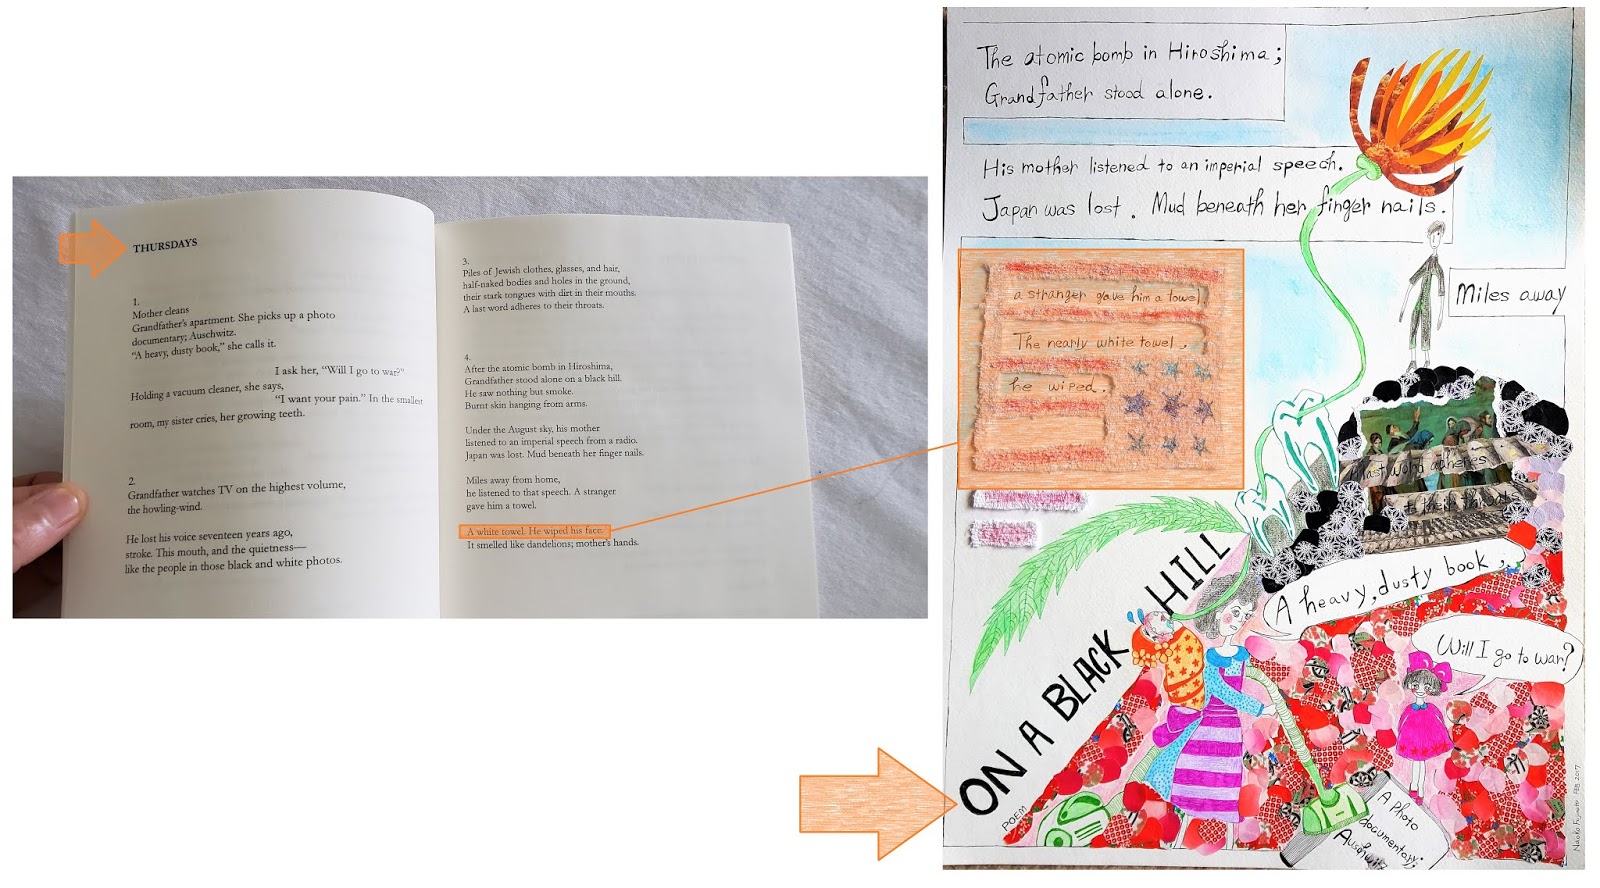 THURSDAYS
1.
Mother cleans
Grandfather's apartment. She picks up a photo
documentary; Auschwitz.
"A heavy, dusty book," she calls it.
I ask her, "Will I go to war?"
Holding a vacuum cleaner, she says,
"I want your pain." In the smallest
room, my sister cries, her growing teeth.
2.
Grandfather watches TV on the highest volume,
the howling-wind.
He lost his voice seventeen years ago,
stroke. This mouth, and the quietness—
like the people in those black and white photos.
3.
Piles of Jewish clothes, glasses, and hair,
half-naked bodies and holes in the ground,
their stark tongues with dirt in their mouths.
A last word adheres to their throats.
4.
After the atomic bomb in Hiroshima,
Grandfather stood alone on a black hill.
He saw nothing but smoke.
Burnt skin hanging from arms.
Under the August sky, his mother
listened to an imperial speech from a radio.
Japan was lost. Mud beneath her finger nails.
Miles away from home,
he listened to that speech. A stranger
gave him a towel.
A white towel. He wiped his face.
It smelled like dandelions; mother's hands.
The atomic bomb in Hiroshima;
Grandfather stood alone.
His mother listened to an imperial speech.
Japan was lost. Mud beneath her finger nails.
Miles away
a stranger gave him a towel
The nearly white towel.
he wiped.
A last word adheres
to their throats
A heavy, dusty book;
Will I go to war?
ON A BLACK HILL
POEM
A Photo
documentary;
Auschwitz
Naoko Fujimoto FEB 2017